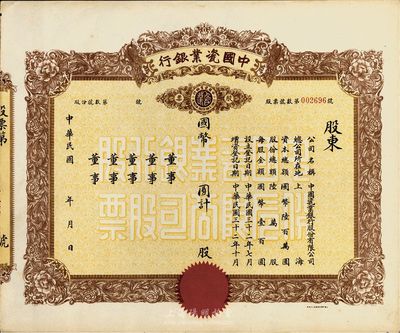 中國瓷業銀行
股票號數第002696號
股份號數第 號
股東
公司名稱 中國瓷業銀行股份有限公司
總公司所在地 上海
資本總額 國幣陸百萬圓
股份總額 陸萬股
每股金額 國幣壹百圓
設立登記日期 中華民國三十二年七月
增資登記日期 中華民國三十二年十月
國幣 圓計 股
董事
董事
董事
董事
董事
中華民國 年 月 日
股票第
號